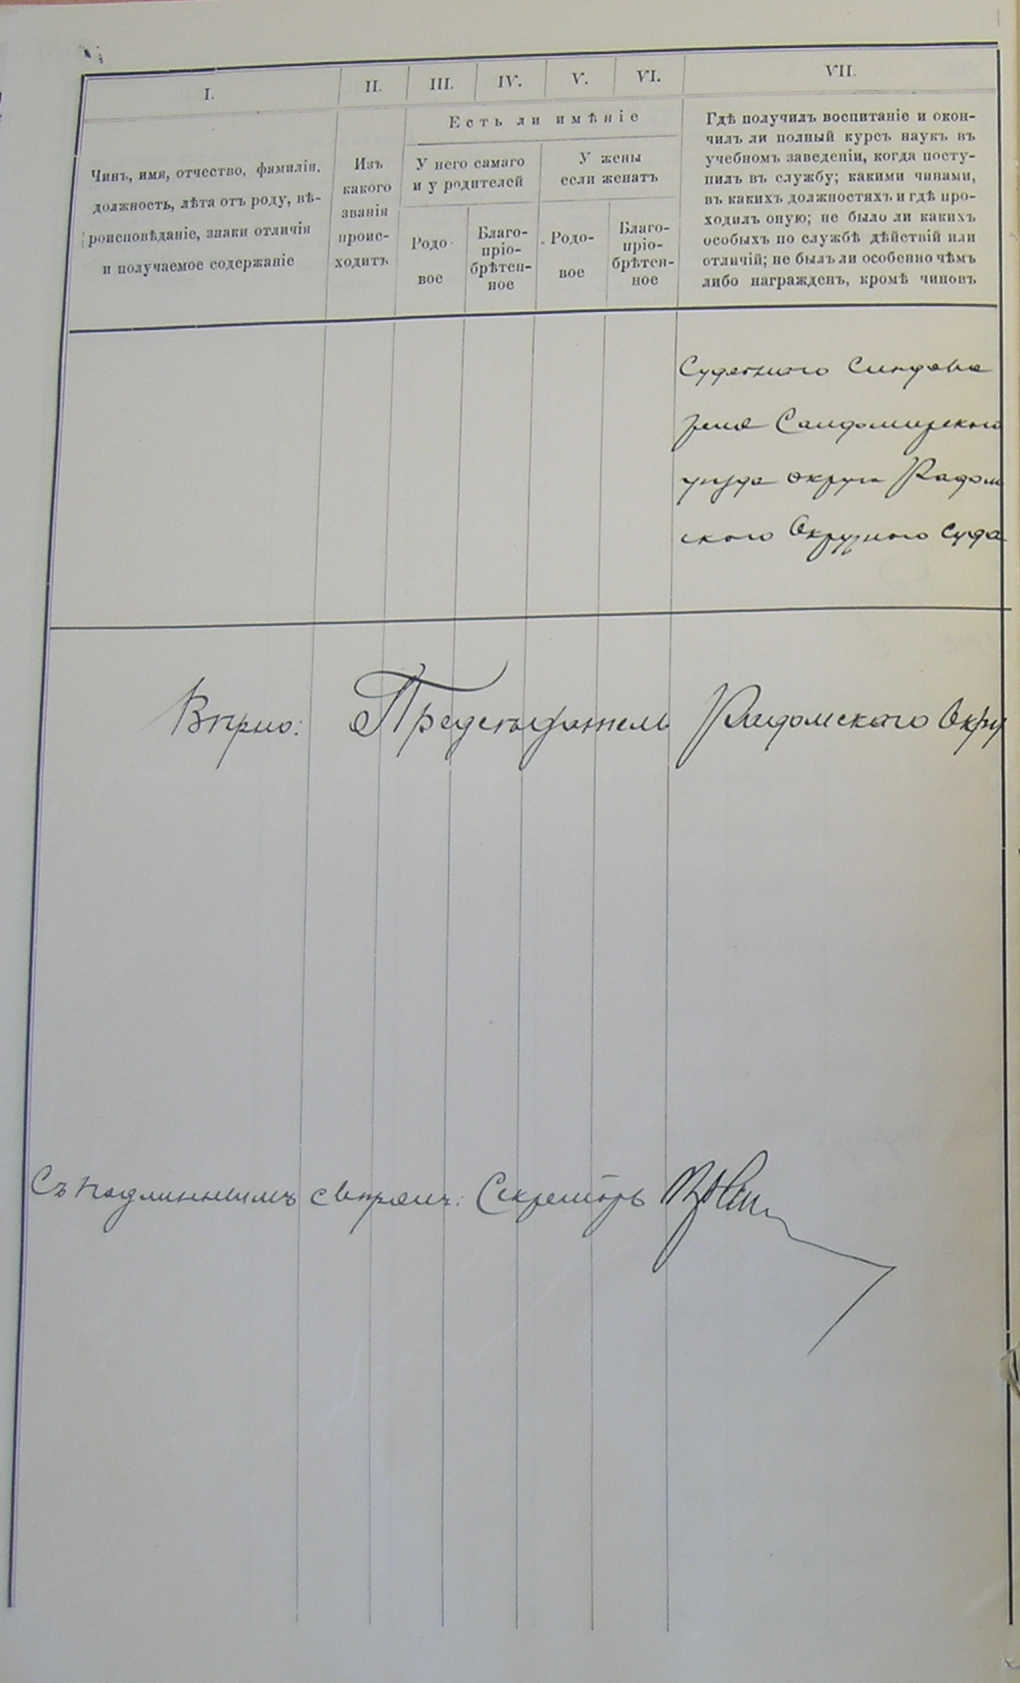 I. II. III. IV. V. VI. VII.
Чинъ, имя, отчество, фамилія,
должность, лѣта отъ роду, вѣ-
роисповѣданіе, знаки отличія
и получаемое содержаніе
Изъ
какого
званія
проис-
ходитъ
Есть ли имѣніе
У него самаго
и у родителей
У жены
если женатъ
Родо-
вое
Благо-
пріо-
брѣтен-
ное
Родо-
вое
Благо-
пріо-
брѣтен-
ное
Гдѣ получилъ воспитаніе и окон-
чилъ ли полный курсъ наукъ въ
учебномъ заведеніи, когда посту-
пилъ въ службу; какими чинами,
въ какихъ должностяхъ и гдѣ про-
ходилъ оную; не было ли какихъ
особыхъ по службѣ дѣйствій или
отличій; не былъ ли особенно чѣмъ
либо награжденъ, кромѣ чиновъ
Судебнаго Слѣдова
теля Сандомирскаго
уѣзда округа Радом
скаго Окружнаго Суда
Вѣрно: Предсѣдатель Радомскаго Окру
Съ подлиннымъ свѣрялъ: Секретарь